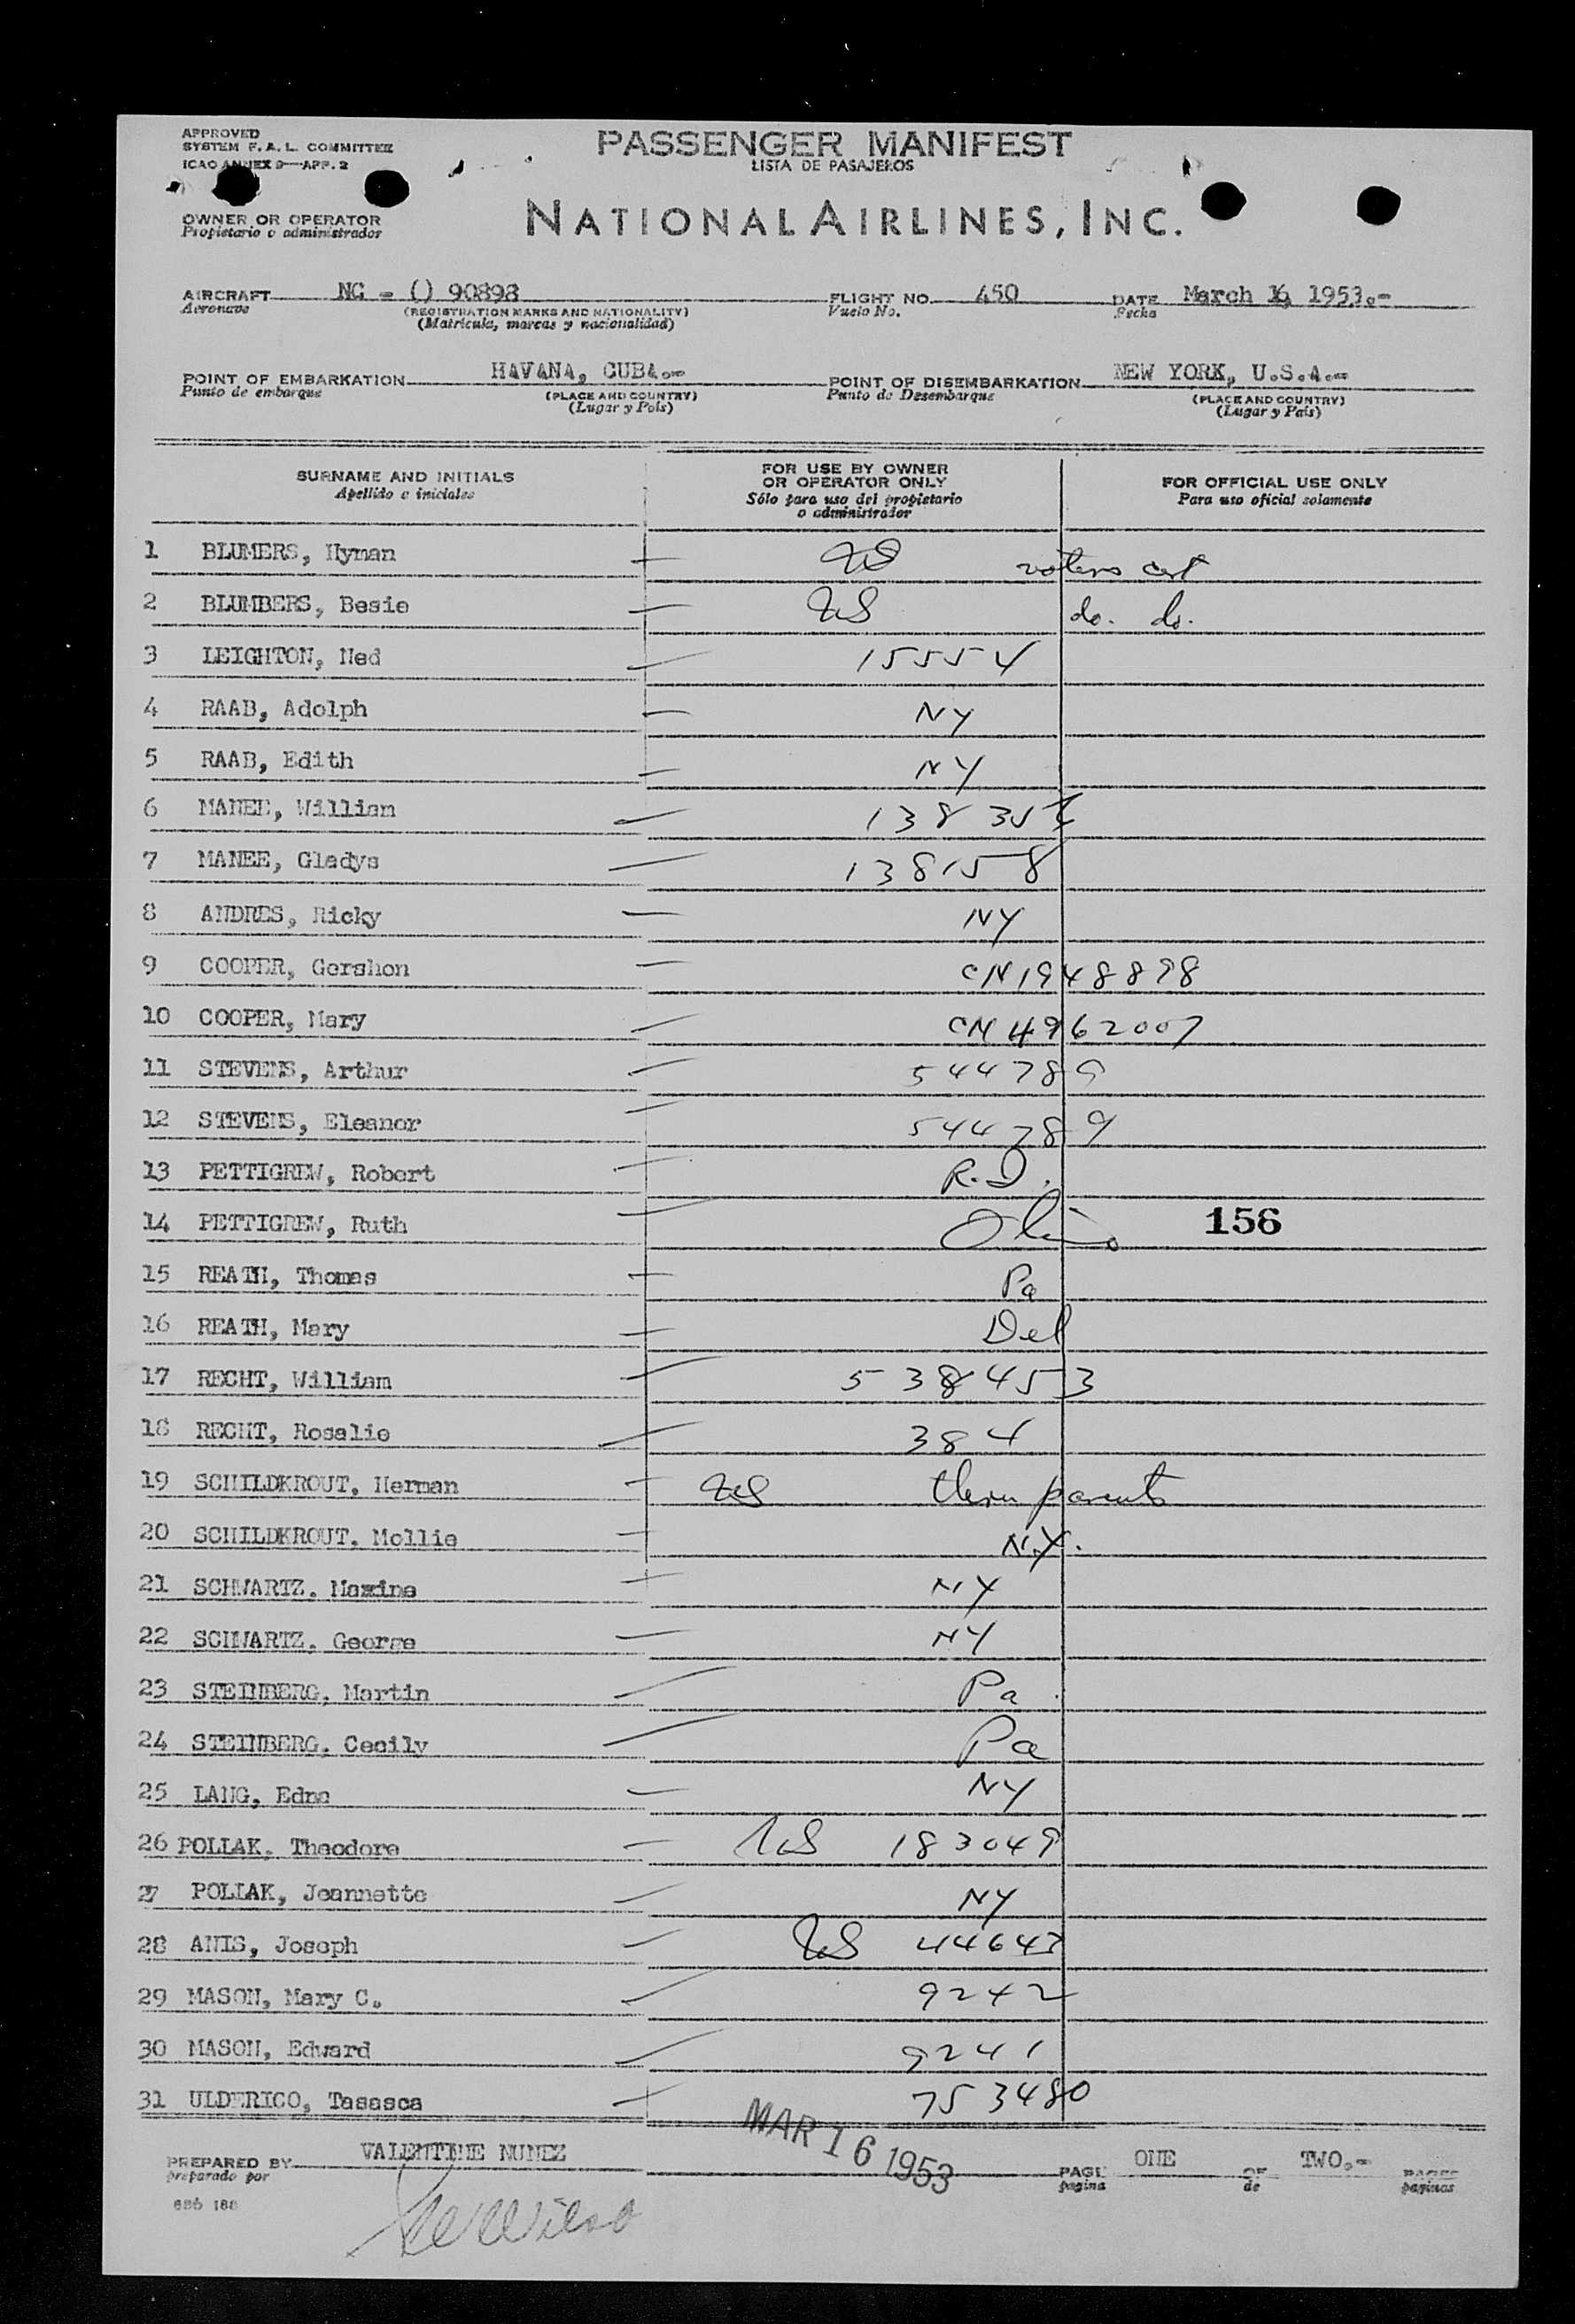 APPROVED
SYSTEM F. A. L. COMMITTEE
ICAO ANNEX 9—APP. 2
PASSENGER MANIFEST
LISTA DE PASAJEROS
OWNER OR OPERATOR
Propietario o administrador
NATIONAL AIRLINES, INC.
AIRCRAFT NC - () 90898 FLIGHT NO. 450 DATE March 16, 1953.-
Aeronave (REGISTRATION MARKS AND NATIONALITY) Vuelo No. Fecha
(Matrícula, marcas y nacionalidad)
POINT OF EMBARKATION HAVANA, CUBA.- POINT OF DISEMBARKATION NEW YORK, U.S.A.-
Punto de embarque (PLACE AND COUNTRY) Punto de Desembarque (PLACE AND COUNTRY)
(Lugar y País) (Lugar y País)
SURNAME AND INITIALS
Apellido e iniciales
FOR USE BY OWNER
OR OPERATOR ONLY
Sólo para uso del propietario
o administrador
FOR OFFICIAL USE ONLY
Para uso oficial solamente
1 BLUMERS, Hyman US voters cert
2 BLUMBERS, Besie US do. do.
3 LEIGHTON, Ned 15554
4 RAAB, Adolph NY
5 RAAB, Edith NY
6 MANEE, William
7 MANEE, Gladys 138158
8 ANDRES, Ricky NY
9 COOPER, Gershon CN1948898
10 COOPER, Mary CN 4962007
11 STEVENS, Arthur 544789
12 STEVENS, Eleanor 544789
13 PETTIGREW, Robert R.I.
14 PETTIGREW, Ruth Ohio 156
15 REATH, Thomas Pa
16 REATH, Mary Del
17 RECHT, William 538453
18 RECHT, Rosalie 384
19 SCHILDKROUT, Herman US thru parents
20 SCHILDKROUT. Mollie N.Y.
21 SCHWARTZ. Maxine NY
22 SCHWARTZ. George NY
23 STEINBERG, Martin Pa.
24 STEINBERG. Cecily Pa
25 LANG, Edna NY
26 POLLAK. Theodore US 183049
27 POLLAK, Jeannette NY
28 ANIS, Joseph US 44643
29 MASON, Mary C. 9242
30 MASON, Edward 9241
31 ULDERICO, Tasasca 753480
MAR 16 1953
PREPARED BY VALENTINE NUNEZ PAGE ONE OF TWO.- PAGES
preparado por pagina de paginas
686 188